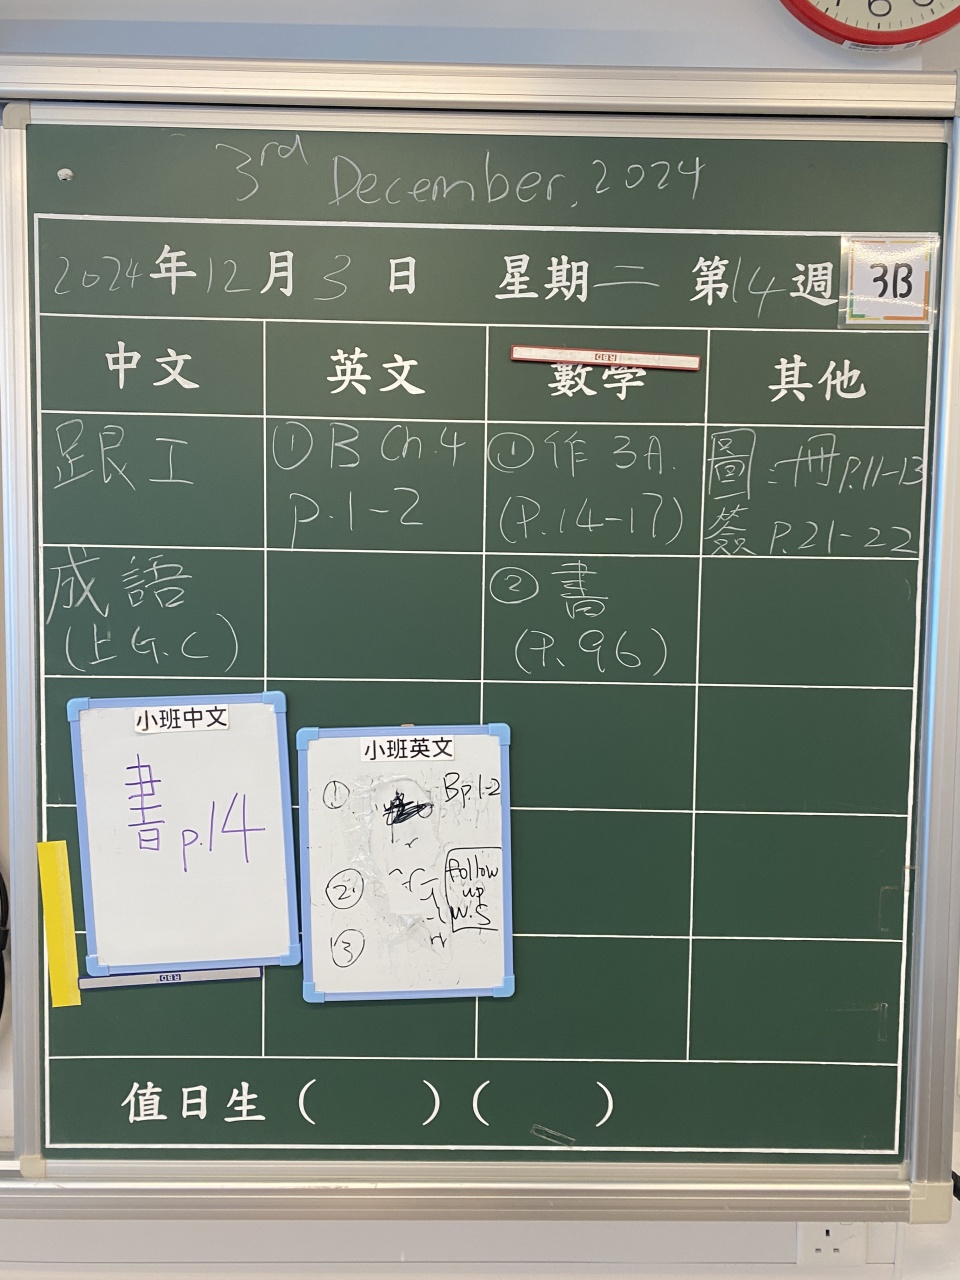 3rd December, 2024
2024年12月3日 星期二 第14週
3B
中文 英文 數學 其他
跟工
① B Ch.4
p.1-2
① 作 3A.
(P.14-17)
圖:冊 P.11-13
簽 P.21-22
成語
(上G.C)
② 書
(P.96)
小班中文
書 p.14
小班英文
① Bp.1-2
②
follow
up
W.S
③
值日生 ( ) ( )
RBD
RBD